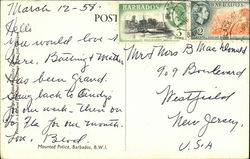 March 12-58.
POST
BARBADOS
BARBADOS
Hello
you would love it
here. Boating & weather
has been grand.
Going back to
for one week. then on
to Fla for one month.
Love,
Mr & Mrs B MacDonald
909 Boulevard
Westfield
New Jersey.
U.S.A
Mounted Police, Barbados, B.W.I.